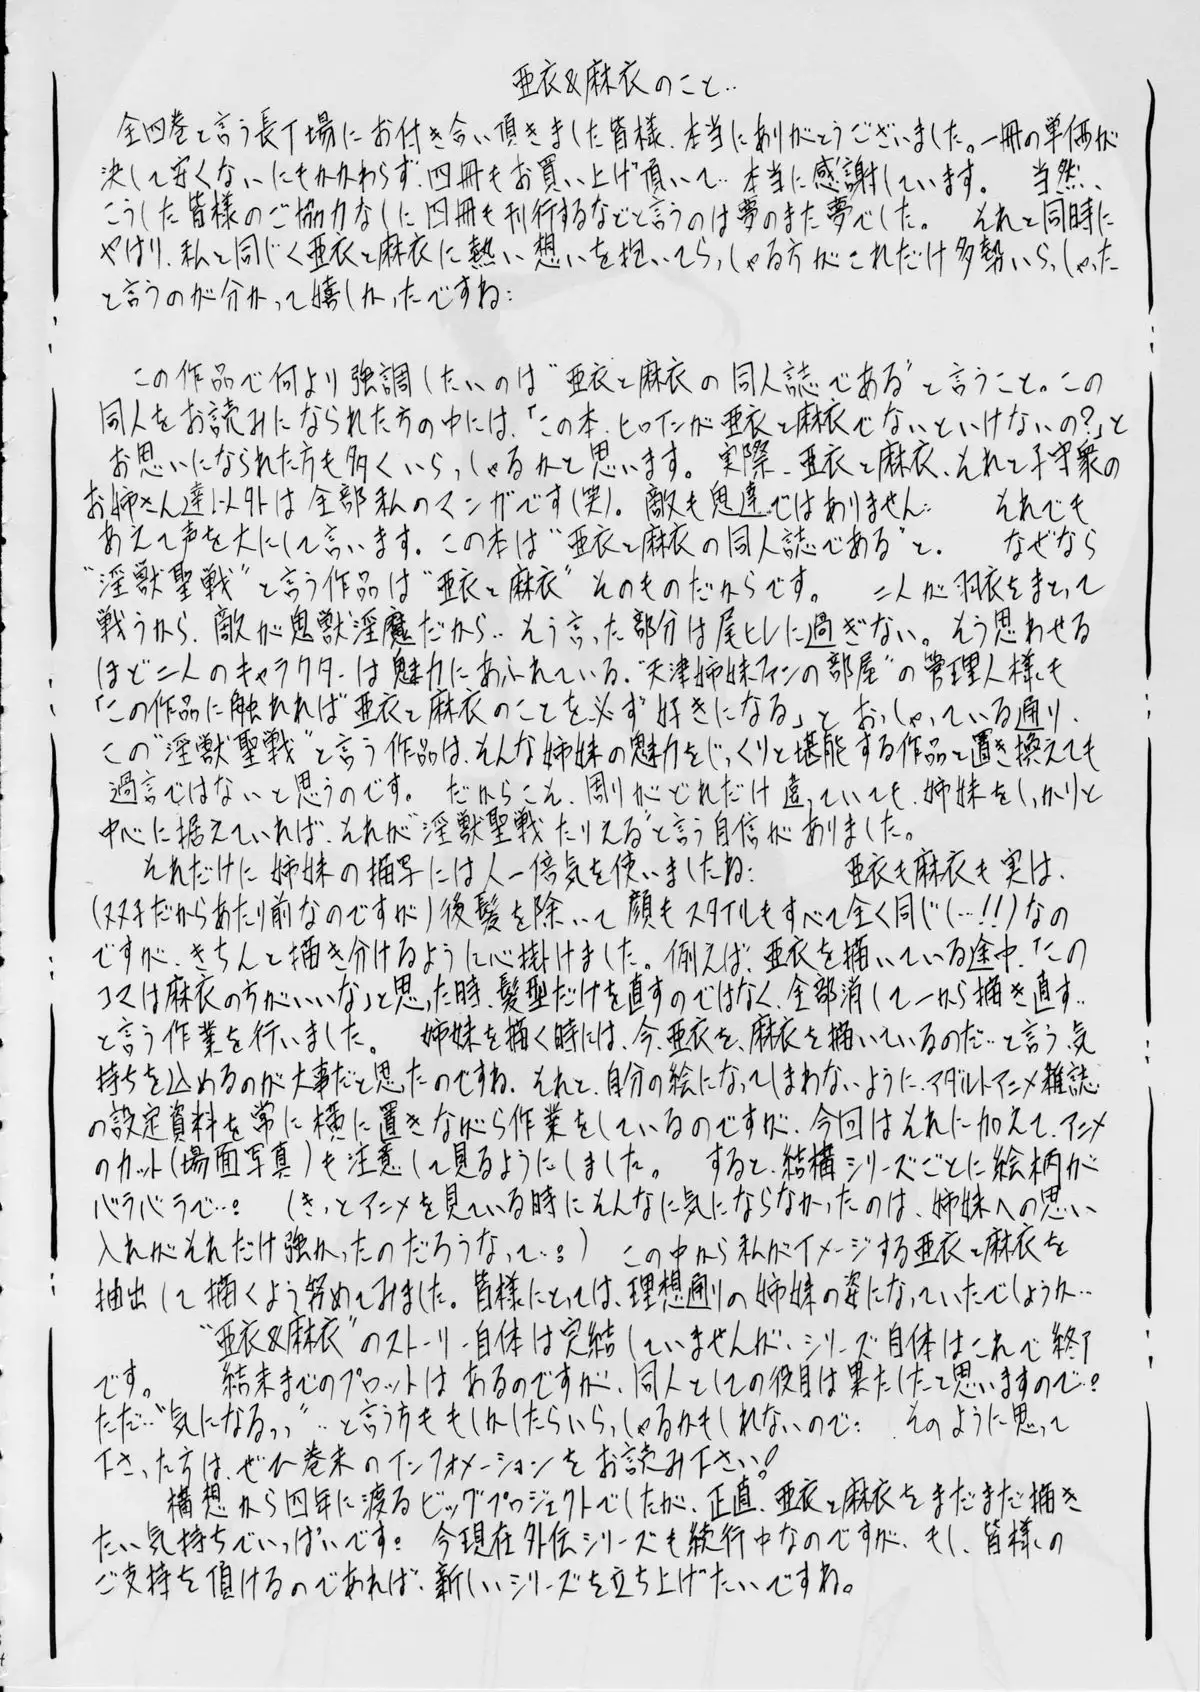 亜衣&麻衣のこと‥
全四巻と言う長丁場にお付き合い頂きました皆様、本当にありがとうございました。一冊の単価が
決して安くないにもかかわらず、四冊もお買い上げ頂いて‥本当に感謝しています。 当然、
こうした皆様のご協力なしに四冊も刊行するなどと言うのは夢のまた夢でした。 それと同時に
やはり、私と同じく亜衣と麻衣に熱い想いを抱いてらっしゃる方がこれだけ多勢いらっしゃった
と言うのが分かって嬉しかったですね:
この作品で何より強調したいのは“亜衣と麻衣の同人誌である”と言うこと。この
同人をお読みになられた方の中には、「この本、ヒロインが亜衣と麻衣でないといけないの?」と
お思いになられた方も多くいらっしゃるかと思います。実際、亜衣と麻衣、それと子守衆の
お姉さん達以外は全部私のマンガです(笑)。敵も鬼達ではありません‥ それでも
あえて声を大にして言います。この本は“亜衣と麻衣の同人誌である”と. なぜなら
“淫獣聖戦”と言う作品は“亜衣と麻衣”そのものだからです。 二人が羽衣をまとって
戦うから、敵が鬼獣淫魔だから‥そう言った部分は尾ヒレに過ぎない。そう思わせる
ほど二人のキャラクターは魅力にあふれている、“天津姉妹ファンの部屋”の管理人様も
「この作品に触れれば亜衣と麻衣のことを必ず好きになる」とおっしゃっている通り、
この“淫獣聖戦”と言う作品は、そんな姉妹の魅力をじっくりと堪能する作品と置き換えても
過言ではないと思うのです。 だからこそ、周りがどれだけ違っていても、姉妹をしっかりと
中心に据えていれば、それが“淫獣聖戦たりえる”と言う自信がありました。
それだけに姉妹の描写には人一倍気を使いましたね: 亜衣も麻衣も実は、
(ヌヌ子だからあたり前なのですが)後髪を除いて顔もスタイルもすべて全く同じ(…!!)なの
ですが、きちんと描き分けるように心掛けました。例えば、亜衣を描いている途中、「この
コマは麻衣の方がいいな」と思った時、髪型だけを直すのではなく、全部消して一から描き直す‥
と言う作業を行いました。 姉妹を描く時には、今、亜衣を、麻衣を描いているのだ‥と言う気
持ちを込めるのが大事だと思ったのですね、それと、自分の絵になってしまわないように、アダルトアニメ雑誌
の設定資料を常に横に置きながら作業をしているのですが、今回はそれに加えて、アニメ
のカット(場面写真)も注意して見るようにしました。 すると、結構シリーズごとに絵柄が
バラバラで‥。 (きっとアニメを見ている時にそんなに気にならなかったのは、姉妹への思い
入れがそれだけ強かったのだろうなって‥:) この中から私がイメージする亜衣と麻衣を
抽出して描くよう努めてみました。皆様にとっては、理想通りの姉妹の姿になっていたでしょうか‥
“亜衣&麻衣”のストーリー自体は完結していませんが、シリーズ自体はこれで終了
です。 結末までのプロットはあるのですが、同人としての役目は果たしたと思いますので‥。
ただ‥“気になるっっ”‥と言う方ももしかしたらいらっしゃるかもしれないので: そのように思って
下さった方は、ぜひ巻末のインフォメーションをお読み下さい!
構想から四年に渡るビッグプロジェクトでしたが、正直、亜衣と麻衣をまだまだ描き
たい気持ちでいっぱいです: 今現在外伝シリーズも続行中なのですが、もし、皆様の
ご支持を頂けるのであれば、新しいシリーズを立ち上げたいですね。